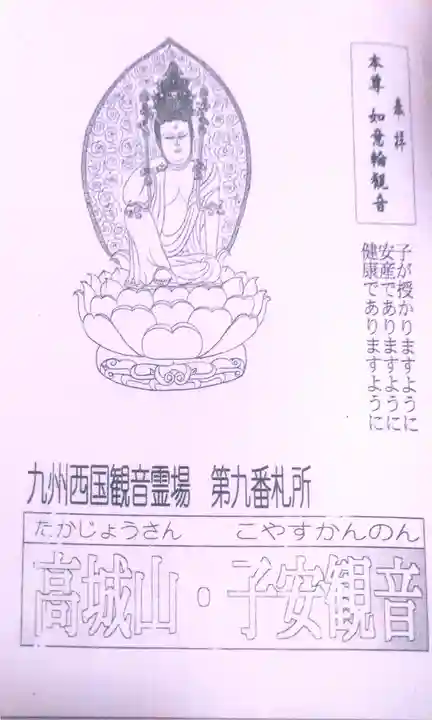 奉拝
本尊 如意輪観音
子が授かりますように
安産でありますように
健康でありますように
九州西国観音霊場 第九番札所
たかじょうさん こやすかんのん
高城山・子安観音